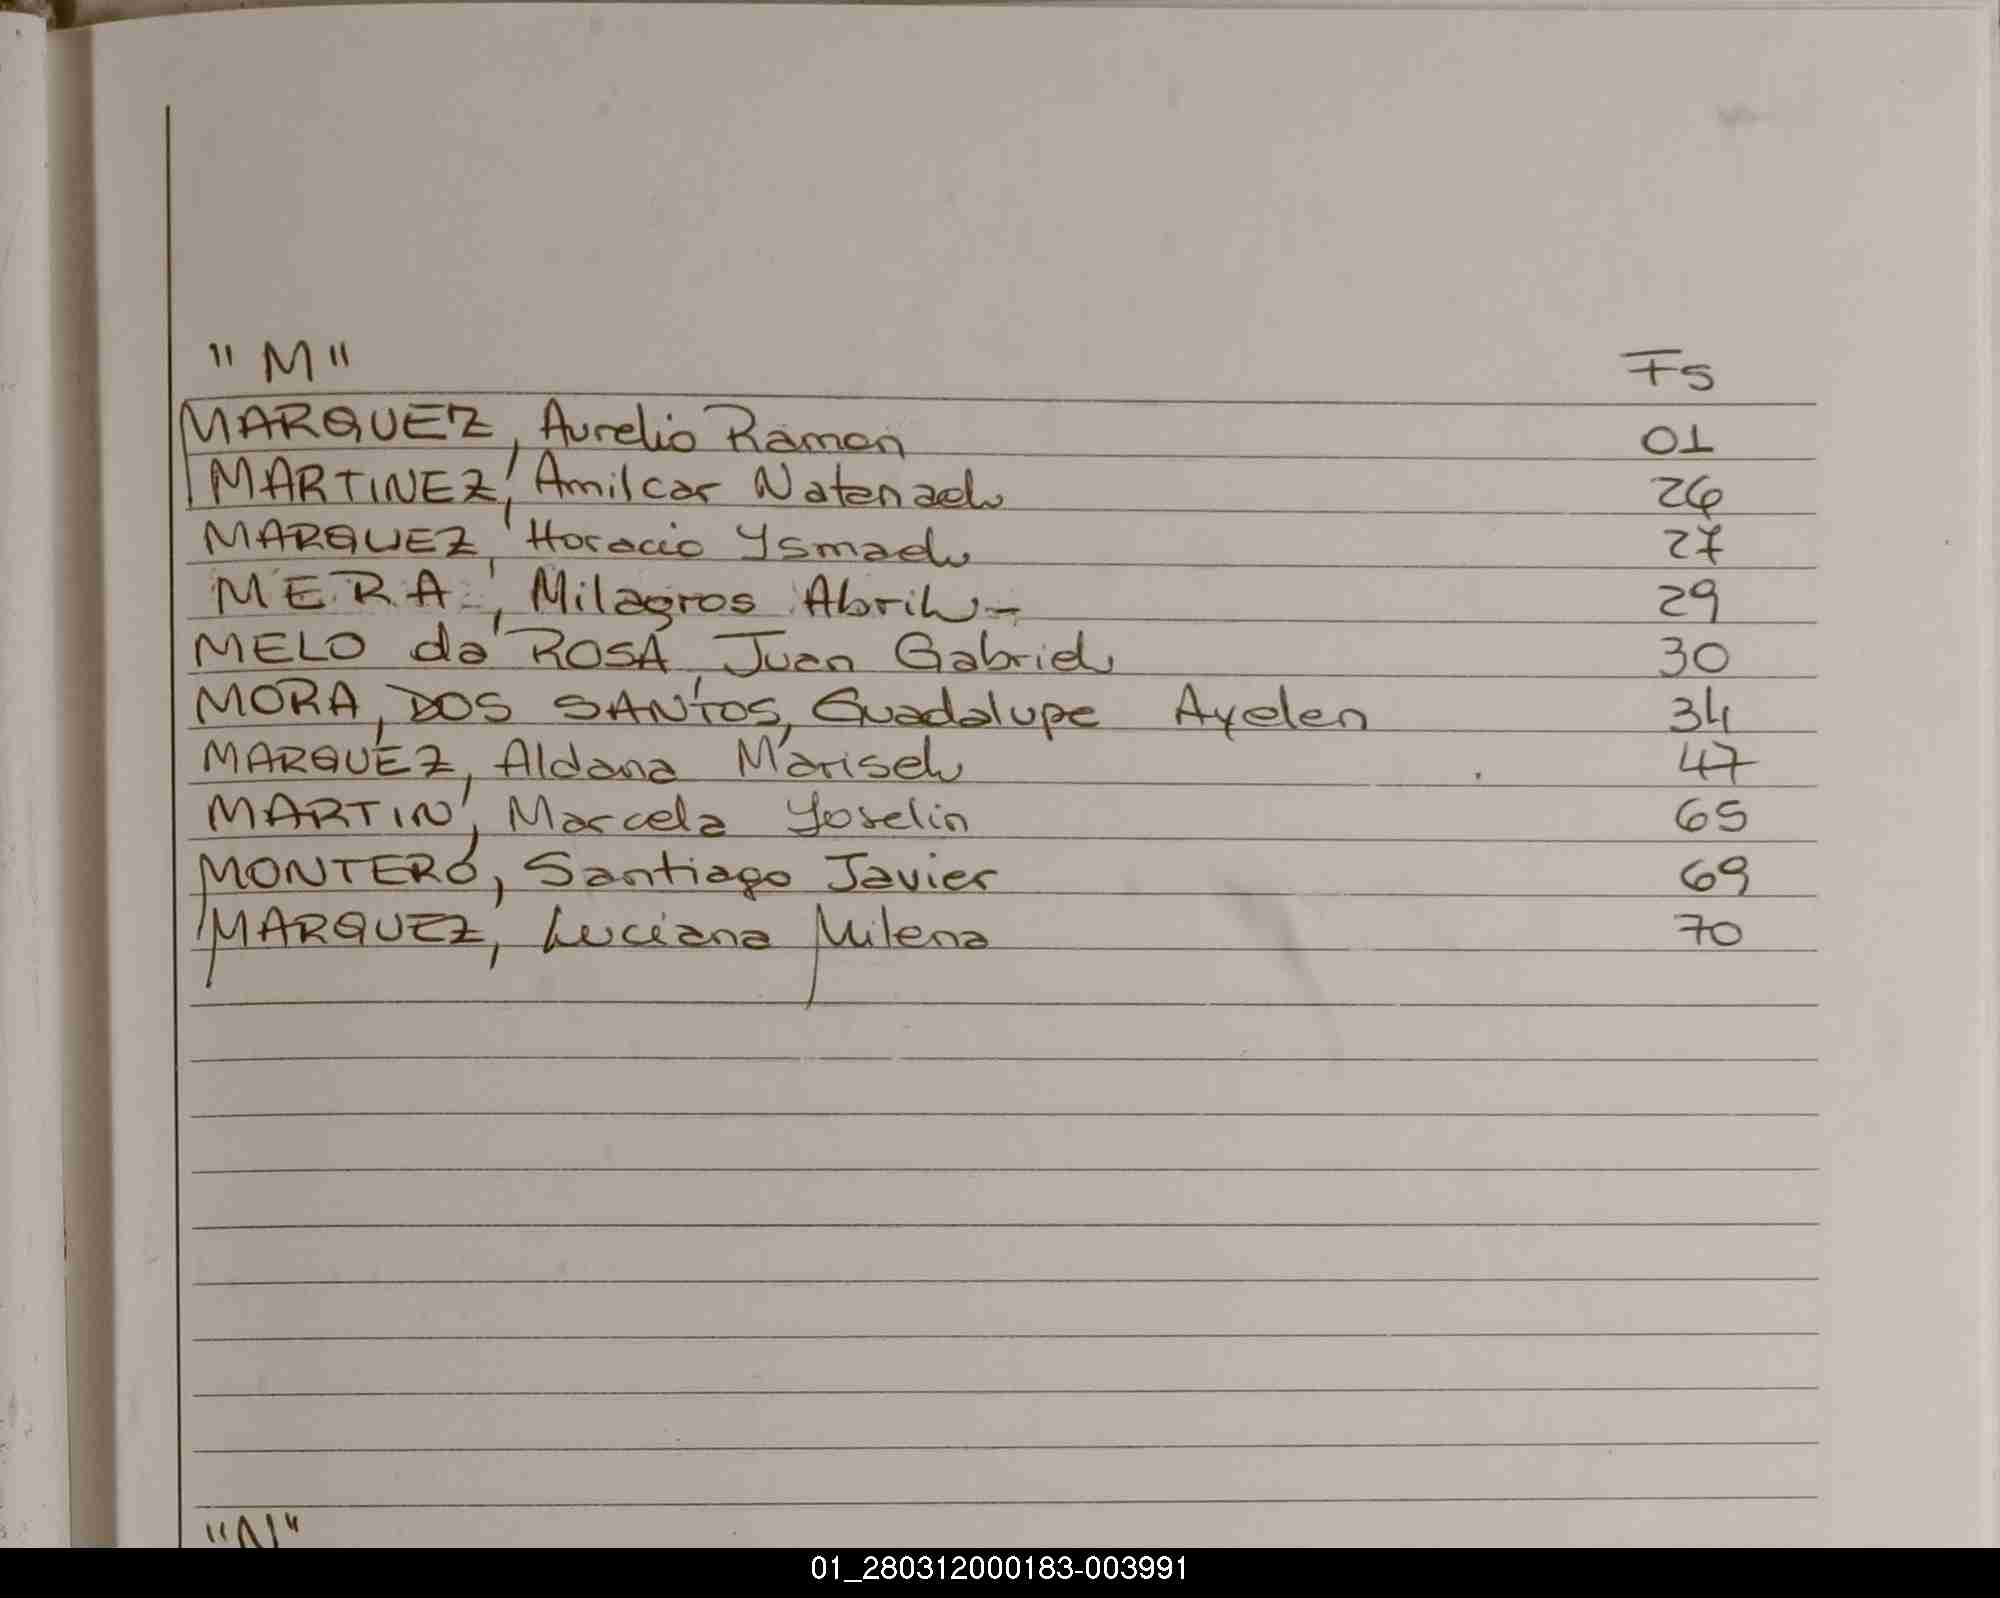 "M" Fs
MARQUEZ, Aurelio Ramon 01
MARTINEZ, Amilcar Natanael 26
MARQUEZ, Horacio Ysmael 27
MERA, Milagros Abril - 29
MELO da ROSA, Juan Gabriel 30
MORA, DOS SANTOS, Guadalupe Ayelen 34
MARQUEZ, Aldana Marisel 47
MARTIN, Marcela Yoselin 65
MONTERO, Santiago Javier 69
MARQUEZ, Luciana Milena 70
"N"
01_280312000183-003991